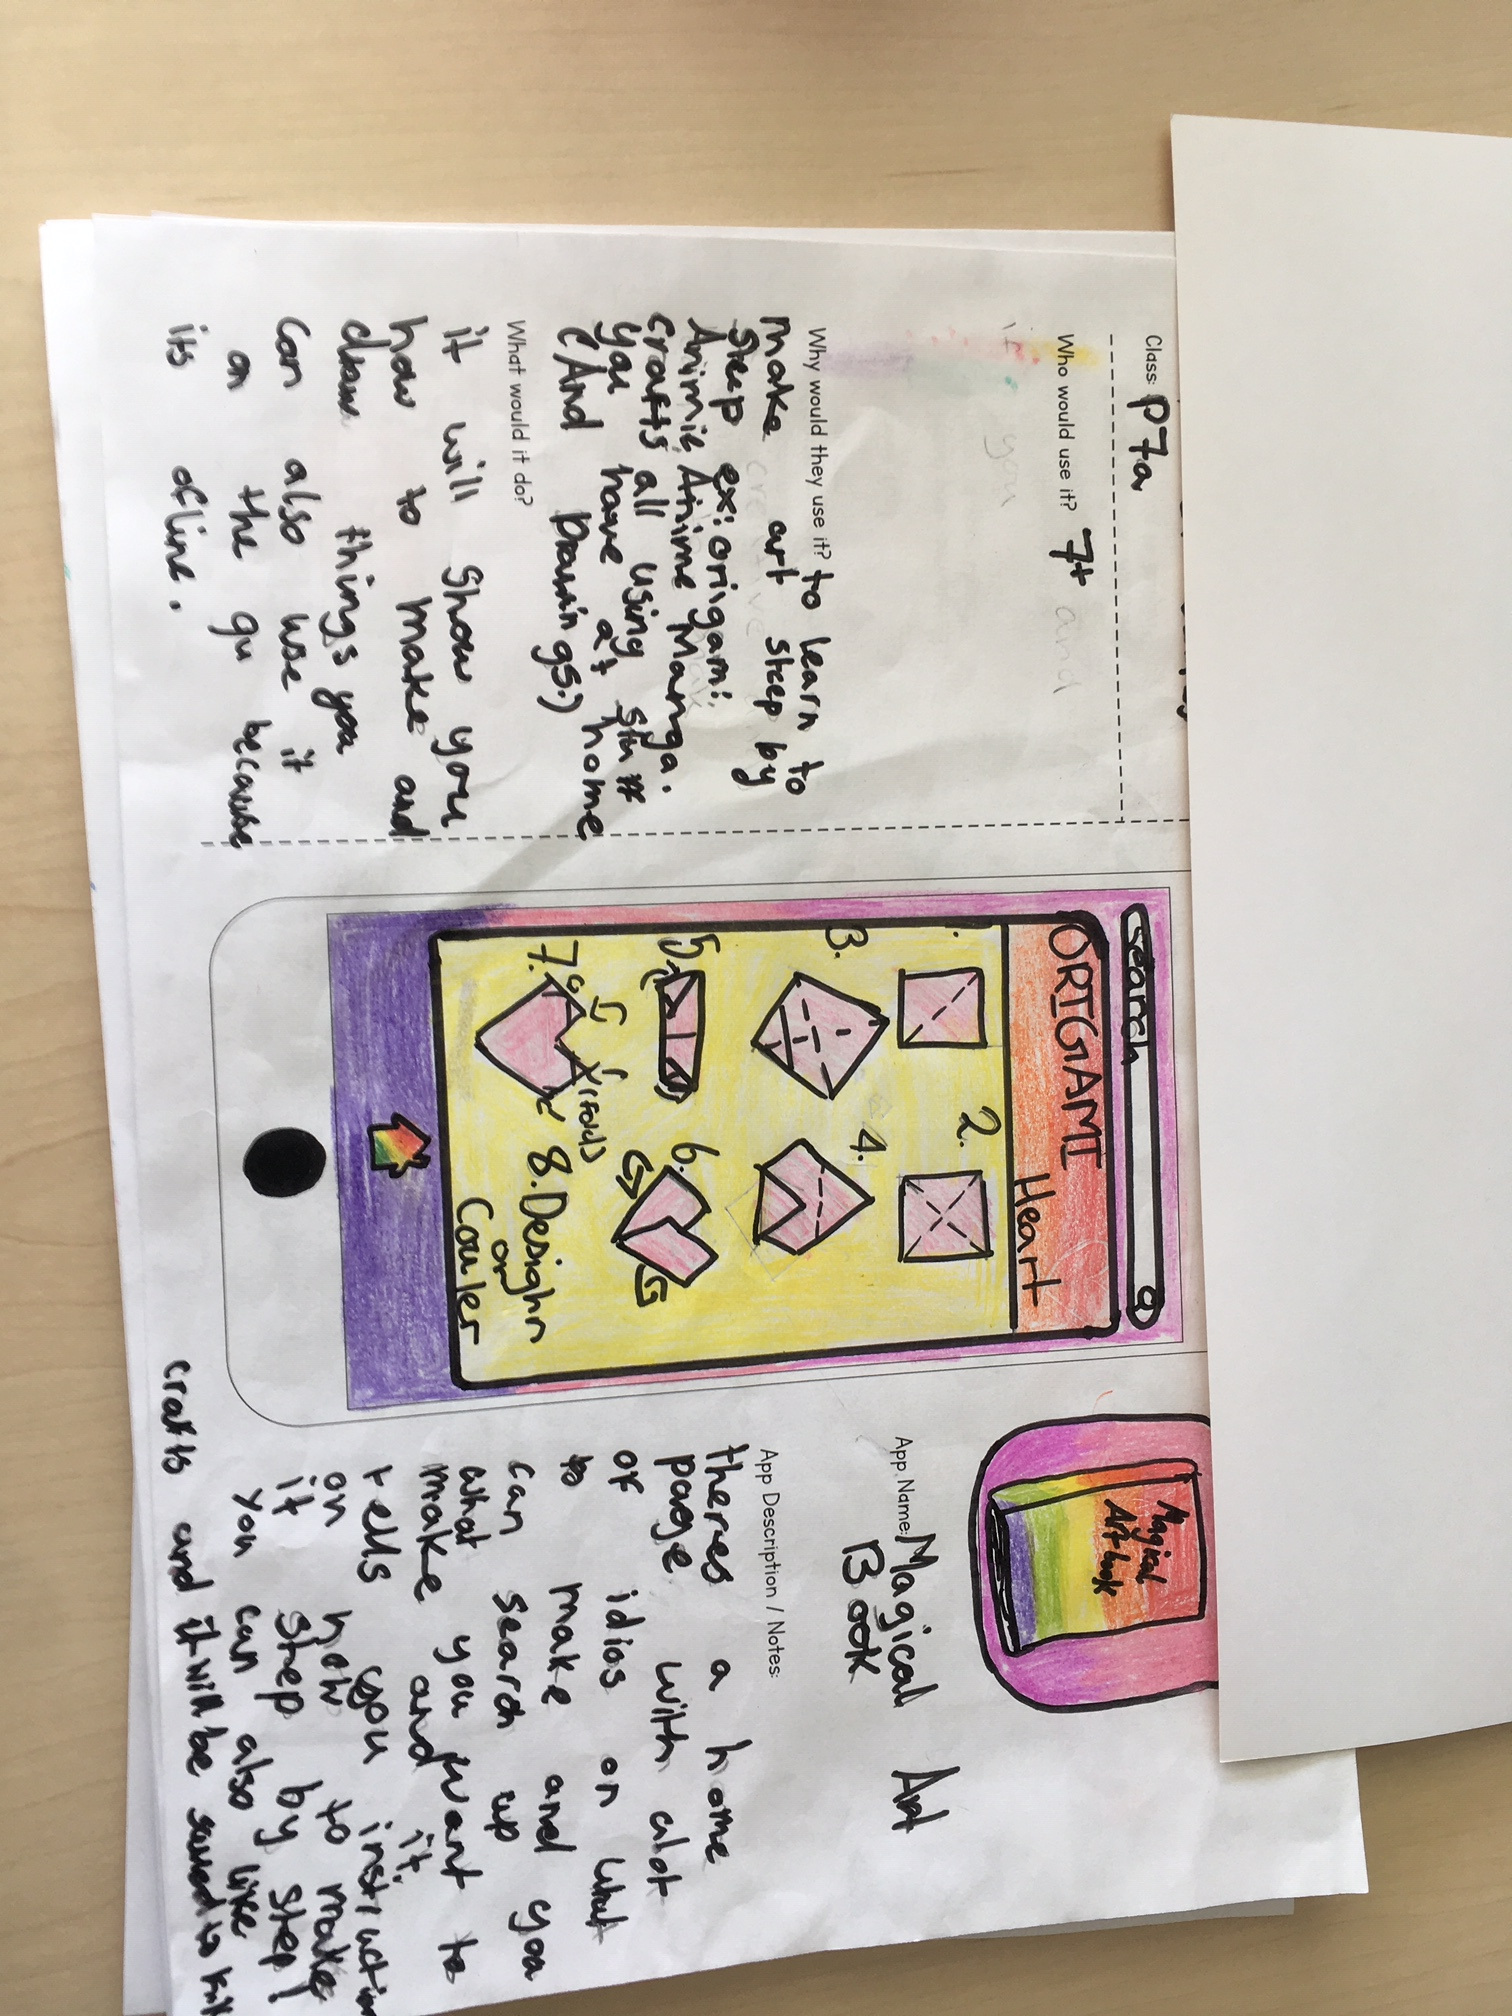 Class: P7a
Who would use it? 7+
Why would they use it? to learn to
make art step by
step ex: origami,
Animie, Anime Manga.
crafts all using
you have at home
(And Drawings.)
What would it do?
it will show you
how to make and
draw things you
can also use it
on the go because
its ofline.
search
ORIGAMI
Heart
1.
2.
3.
4.
5.
6.
7.
(fold)
8. Desighn
or
Couler
Magical
Art book
App Name: Magical Art
Book
App Description / Notes:
theres a home
page with alot
of idios on what
to make and you
can search up
what you want to
make and it
tells you instruction
on how to make
it step by step!
you can also like
crafts and it will be saved to